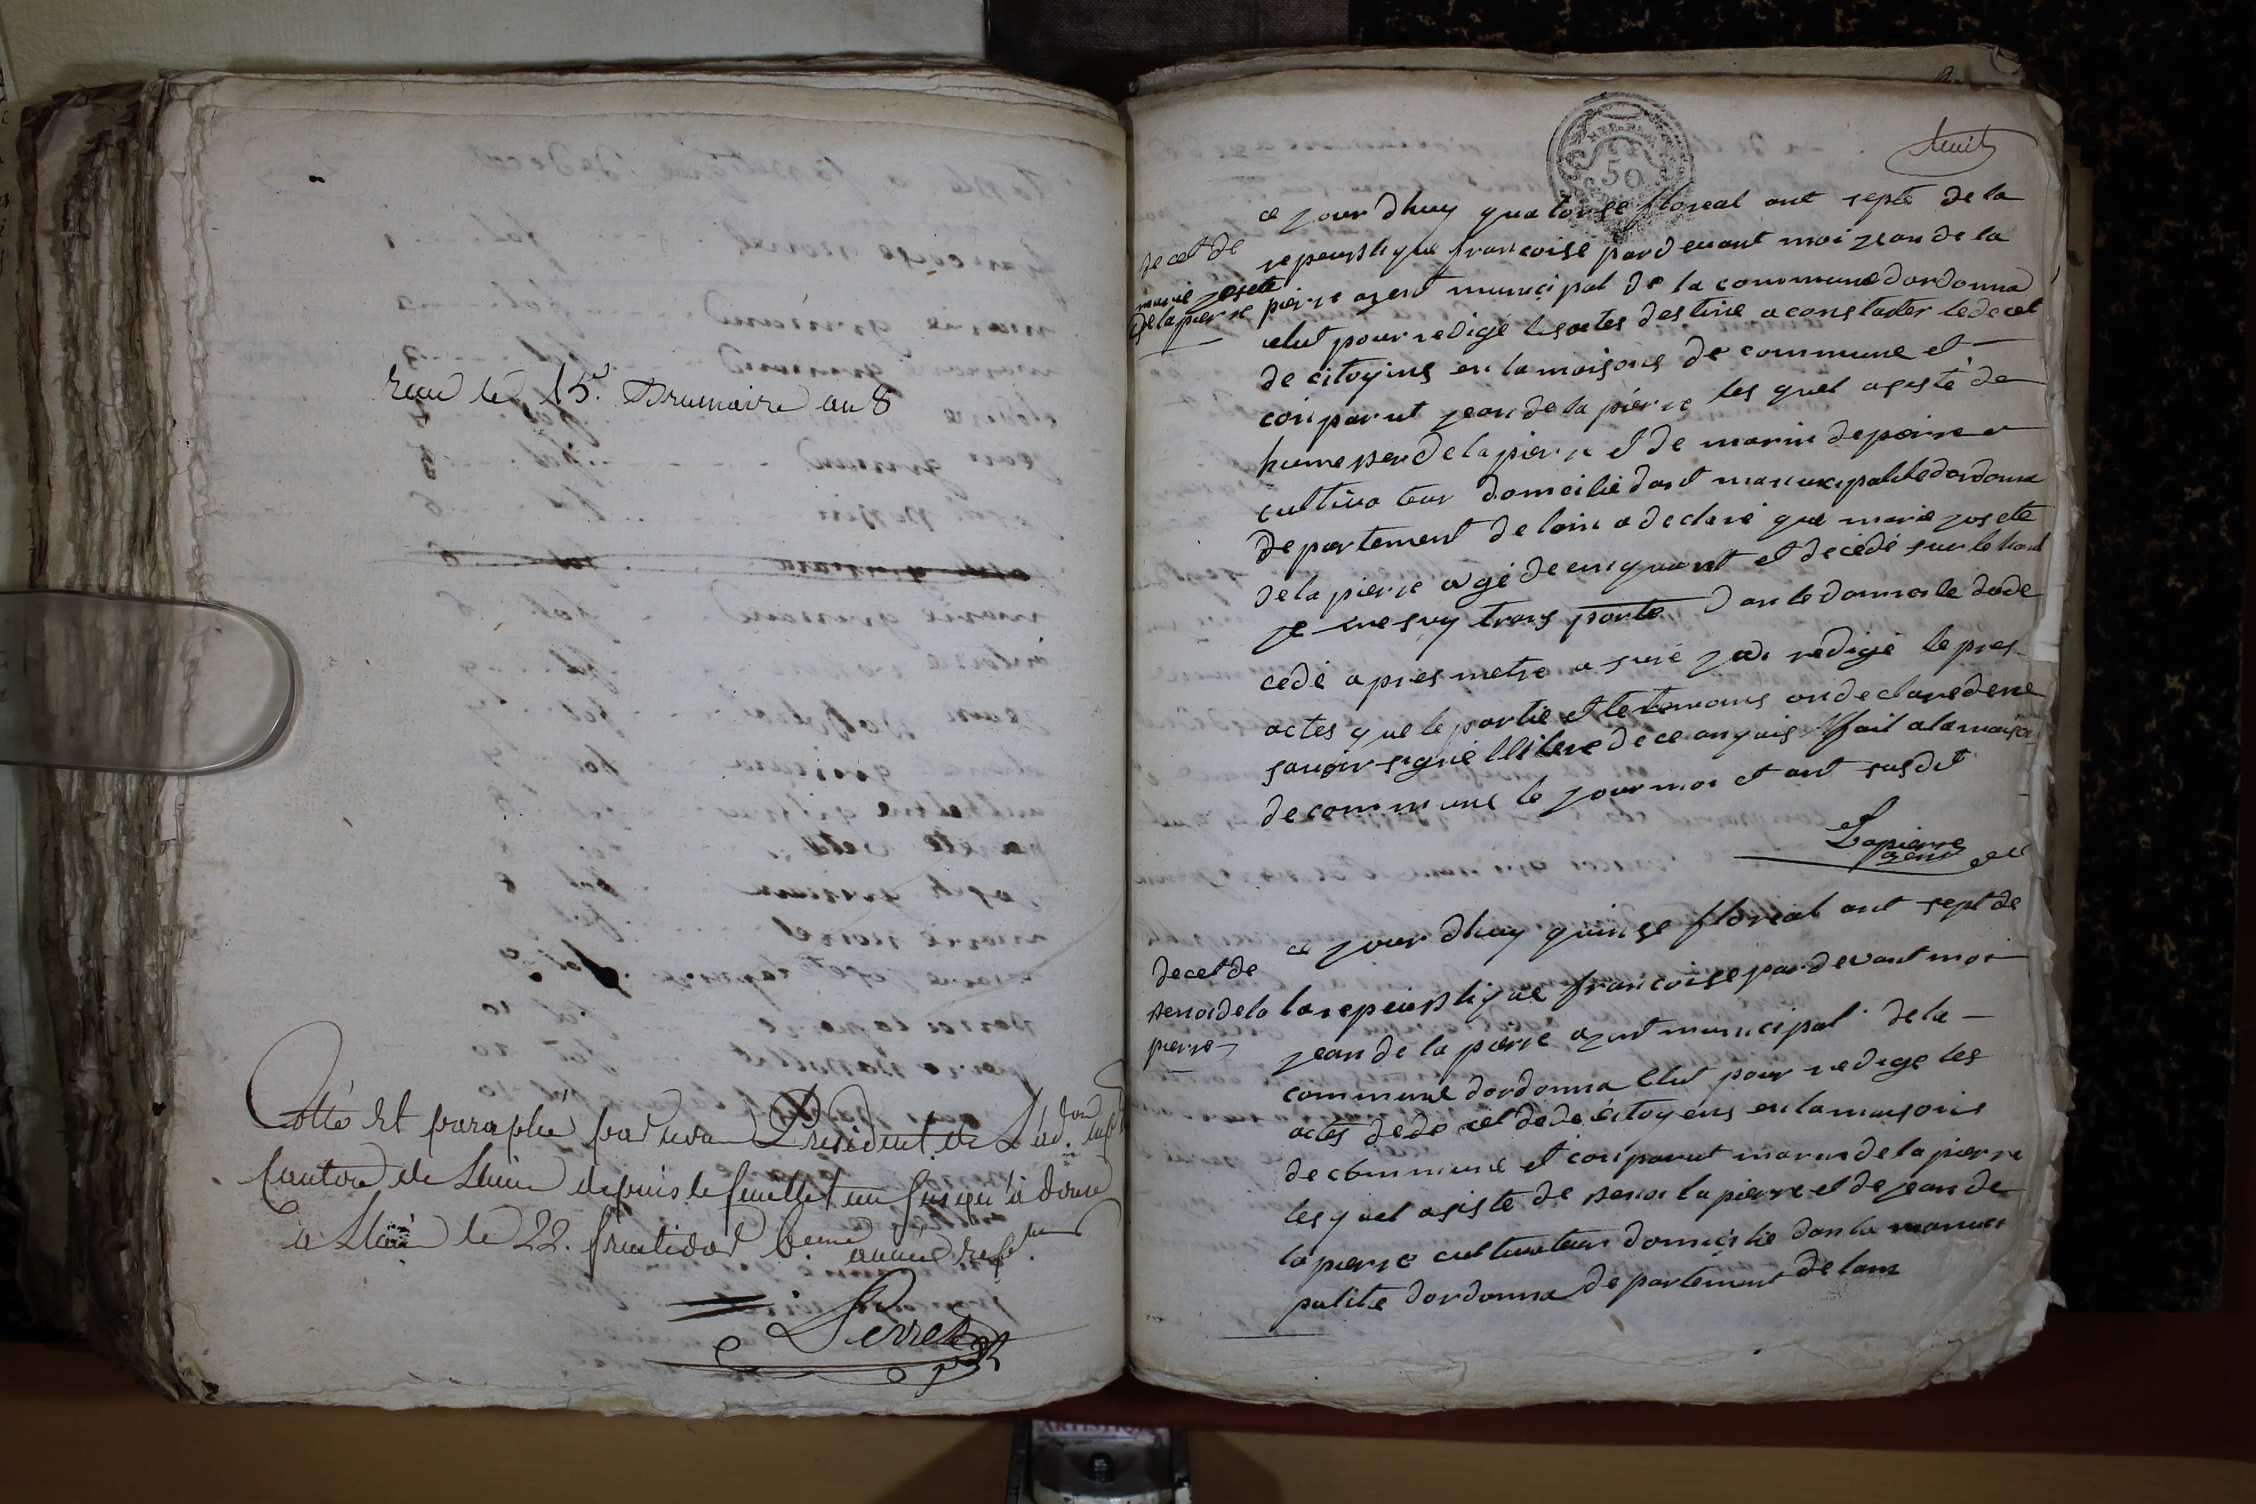 reçu le 15. Brumaire an 8
Cotté et paraphé par nous Président de L'ad.on
Canton de depuis le feuillet un jusqu'à douze
a le 22. fructidor 6.eme année rep.
Perret
huit
50
ce jour dhuy quatorse floreal ant septe de la
repeublique francoise pardevant moi jean de la
pierre agent municipal de la commune dordonna
elut pour redigé les actes destine a constater le decet
de citoyins en la maisons de commune et
conparut jean de la pierre les quel asisté de
de la pierre et de marin depierre
cultivateur domeilié dant manucipalité dordonna
departement de lain a declaré que marie josete
de la pierre agé de cinquant et decédé sur le
je me suy trans porté dan le domicile dude
cedé apres metre asuré jai redigé le pres
actes que le partie et le temoins on declare de ne
savoir signé de ce fait a la maison
de commune le jour moi et ant susdit
Lapierre
agent
decet de
marie josete
de la pierre
ce jour dhuy quinse floreal ant sept de
la repeublique francoise pardevant moi
jean de la pierre agent municipal de la
commune dordonna elut pour redige les
actes de de cet de de citoyens en la maisons
de commune et conparut marin de la pierre
les quel asiste de benoi la pierre et de jean de
la pierre cultivateur domicilie dan la manuci
palité dordonna departement de lain
decet de
benoi de la
pierre